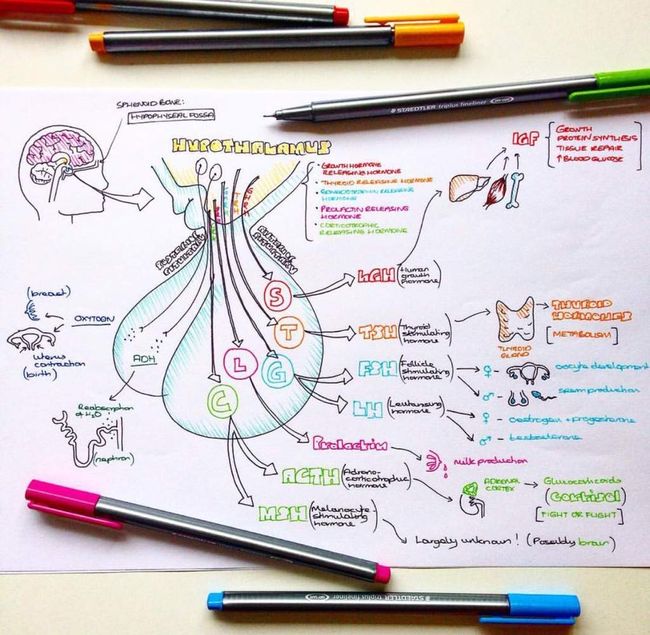 STAEDTLER triplus fineliner
SPHENOID BONE:
HYPOPHYSEAL FOSSA
HYPOTHALAMUS
• GROWTH HORMONE
RELEASING HORMONE
• THYROID RELEASING HORMONE
• GONADOTROPHIN RELEASING
HORMONE
• PROLACTIN RELEASING
HORMONE
• CORTICOTROPHIC
RELEASING HORMONE
IGF
GROWTH
PROTEIN SYNTHESIS
TISSUE REPAIR
↑ BLOOD GLUCOSE
POSTERIOR
PITUITARY
ANTERIOR
PITUITARY
S
T
L
G
C
ADH
(breast)
OXYTOCIN
uterus
contraction
(birth)
Reabsorption
of H2O
(nephron)
hGH
(Human
growth
hormone)
TSH
(Thyroid
stimulating
hormone)
THYROID
GLAND
THYROID
HORMONES
[METABOLISM]
FSH
(Follicle
stimulating
hormone)
♀ -
oocyte development
♂ -
sperm production
LH
(Leutinising
hormone)
♀ - oestrogen + progesterone
♂ - testosterone
Prolactin
milk production
ACTH
(Adreno-
corticotrophic
hormone)
ADRENAL
CORTEX
Glucocorticoids
(Cortisol)
[FIGHT OR FLIGHT]
MSH
(Melanocyte-
stimulating
hormone)
Largely unknown! (Possibly brain)
STAEDTLER triplus fineliner